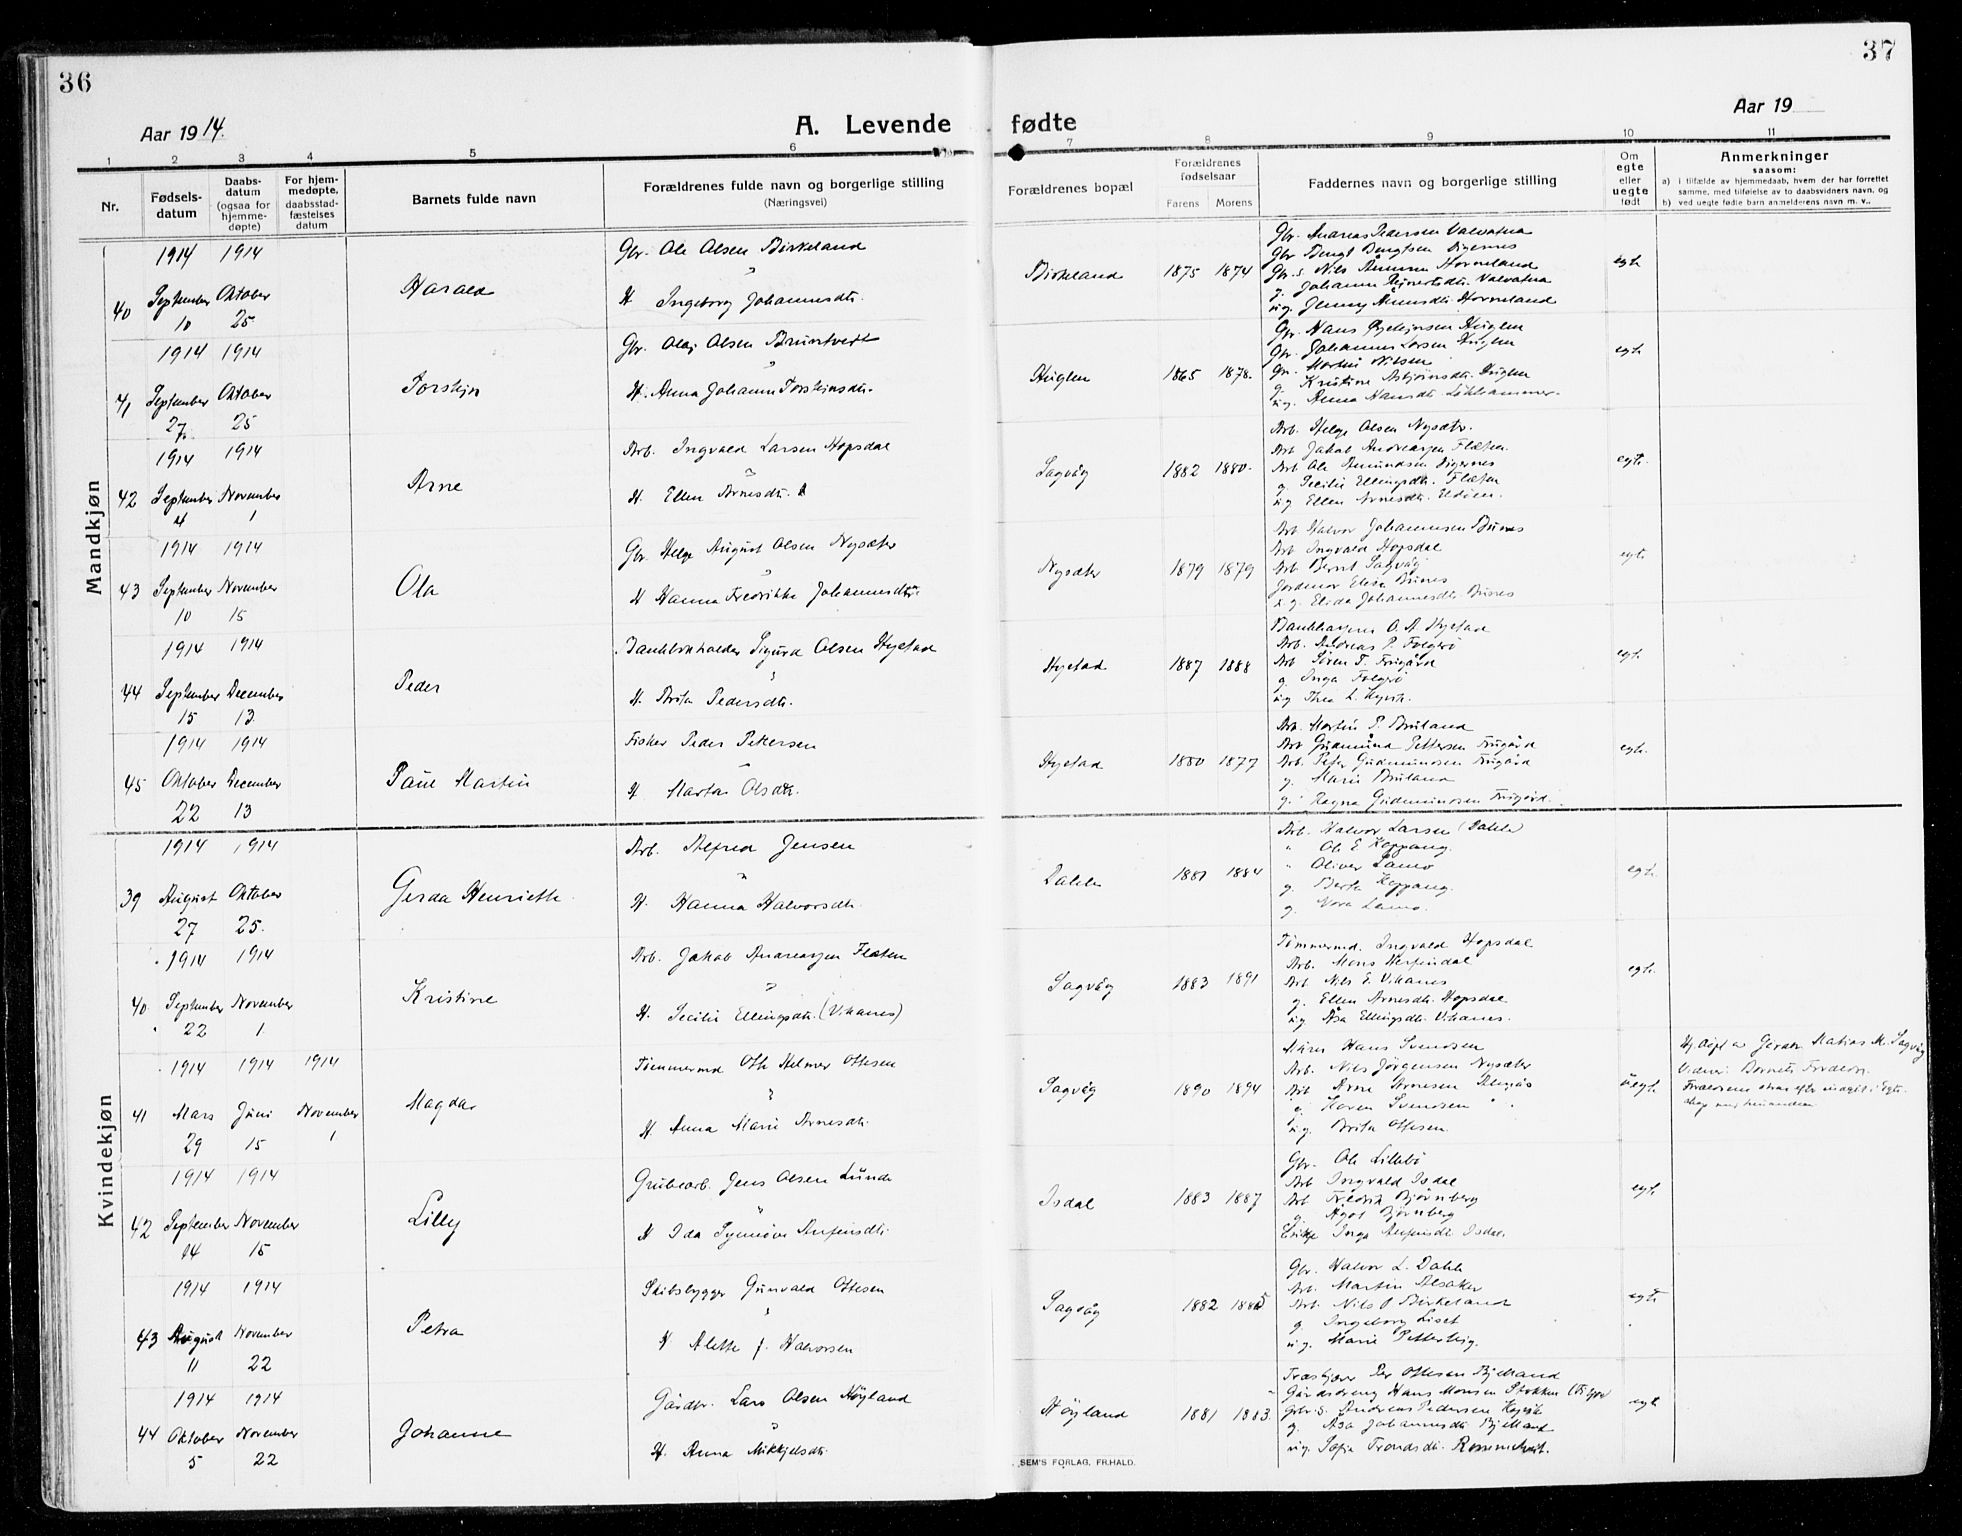 36
37
Aar 1914.
A. Levende fødte
Aar 19
1 2 3 4 5 6 7 8 9 10 11
Nr.
Fødsels-
datum
Daabs-
datum
(ogsaa for
hjemme-
døpte)
For hjem-
medøpte,
daabsstad-
fæstelses
datum
Barnets fulde navn
Forældrenes fulde navn og borgerlige stilling
(Næringsvei)
Forældrenes bopæl
Forældrenes
fødselsaar
Farens Morens
Faddernes navn og borgerlige stilling
Om
egte
eller
uegte
født
Anmerkninger
saasom:
a) i tilfælde av hjemmedaab, hvem der har forrettet
samme, med tilføielse av to daabsvidners navn, og
b) ved uegte fødte barn anmelderens navn m. v..
Mandkjøn
40 1914 September 10 1914 Oktober 25 Harald
Gbr. Ole Olsen Birkeland
H Ingeborg Johannesdtr.
Birkeland 1875 1874
Gbr. Andreas Pedersen Valvatna
Gbr Bengt Bengtsen Digernes
Gbr.s. Nils Horneland
g. Johanna Valvatna
ug. Jenny Horneland
egte
41 1914 September 27. 1914 Oktober 25 Torstein
Gbr. Olaj Olsen Bruntveit
H. Anna Johanna Torsteinsdtr.
Huglen 1865 1878.
Gbr. Hans Huglen
Gbr. Johannes Larsen Huglen
Martin Nilsen
g. Kristine Asbjørnsdtr. Huglen
ug. Anna Hansdtr.
egte
42 1914 September 4 1914 November 1 Arne
Arb. Ingvald Larsen Hopsdal
H. Ellen Arnesdtr.
Sagvåg 1882 1880.
Arb. Helge Olsen Nysæter.
Arb Jakob Andreassen Flæten
Arb Ole Amundsen Digernes
g. Secilie Ellingsdtr. Flæten
ug Ellen Arnesdtr.
egte.
43 1914 September 10 1914 November 15 Ola
Gbr. Helge August Olsen Nysæter
H Hanna Fredrikke Johannesdtr
Nysæter 1879 1879
Arb Halvor Johannesen Busnes
Arb Ingvald Hopsdal
Arb Bernt Sagvåg
Jordmor Elisa Busnes
u. g. Johannesdtr. Busnes
egte
44 1914 September 15 1914 December 13. Peder
Sigurd Olsen Hystad
H. Brita Pedersdtr.
Hystad 1887 1888
O. A Hystad
Arb. Andreas P. Folgerø
Arb Søren T. Frugård
g. Inga Folgerø
ug Thea L.
egte
45 1914 Oktober 22 1914 December 13 Paul Martin
Fisker Peder Petersen
H Marta Olsdtr.
Hystad 1880 1877
Arb. Martin P. Bruland
Arb Gudmund Pettersen Frugård
Arb. Peter Gudmundsen Frugård
g. Marie Bruland
g. Ragna Gudmundsen Frugård.
egte
Kvindekjøn
39 1914 August 27 1914 Oktober 25. Gerda Henriette
Arb. Alfred Jensen
H. Hanna Halvorsdtr.
Dahle 1881 1884
Arb. Halvor Larsen (Dahle)
" Ole E Koppang.
" Oliver
g. Berta Koppang.
g. Nora
egte
40 1914 September 22 1914 November 1. Kristine
Arb. Jakob Andreassen Flæten
H. Secilie Ellingsdtr. (Vihanes)
Sagvåg 1883 1891
Tømmermd. Ingvald Hopsdal
Arb. Mons Herfindal
Arb Nils E. Vihanes
g. Ellen Arnesdtr. Hopsdal
ug Åsa Ellingsdtr. Vihanes.
egte
41 1914 Mars 29 1914 Juni 15 1914 November 1 Magda
Tømmermd Otto Helmer Ottesen
H. Anna Marie Arnesdtr.
Sagvåg 1890 1894
Hans Svendsen
Arb. Nils Jørgensen Nysæter
Arb Arne Arnesen
g. Karen Svendsen
ug. Brita Ottesen.
uegte
Hj. døpt av Matias M. Sagvåg
Vidner: Barnets Forældre.
42 1914 September 14 1914 November 15 Lilly
Grubearb. Jens Olsen Lunde
H Ida Synnøve Arfinsdtr.
Isdal 1883 1887
Gbr. Ole Lillebø
Arb Ingvald Isdal
Arb Fredrik Bjørnberg
g. Agot Bjørnberg
Inga Arfinsdtr. Isdal.
egte
43 1914 August 11 1914 November 22 Petra
Skibsbygger Gunvald Ottesen
H Alette f. Halvorsen
Sagvåg 1882 1885
Gbr. Halvor L. Dahle
Arb. Martin Alsaker
Arb. Nils O Birkeland
g Ingeborg Liset
ug. Marie Petterteig.
egte
44 1914 Oktober 5 1914 November 22 Johanne
Gårdbr. Lars Olsen Høyland
H. Anna Mikkjelsdtr.
Høyland 1881 1883.
Per Ottesen Bjelland
Gårdsdreng Hans Monsen Stokken
Gbr.s. Andreas Pedersen
g. Åsa Johannesdtr. Bjelland
ug. Sofie Trondsdtr.
egte
SEM'S FORLAG, FR.HALD.